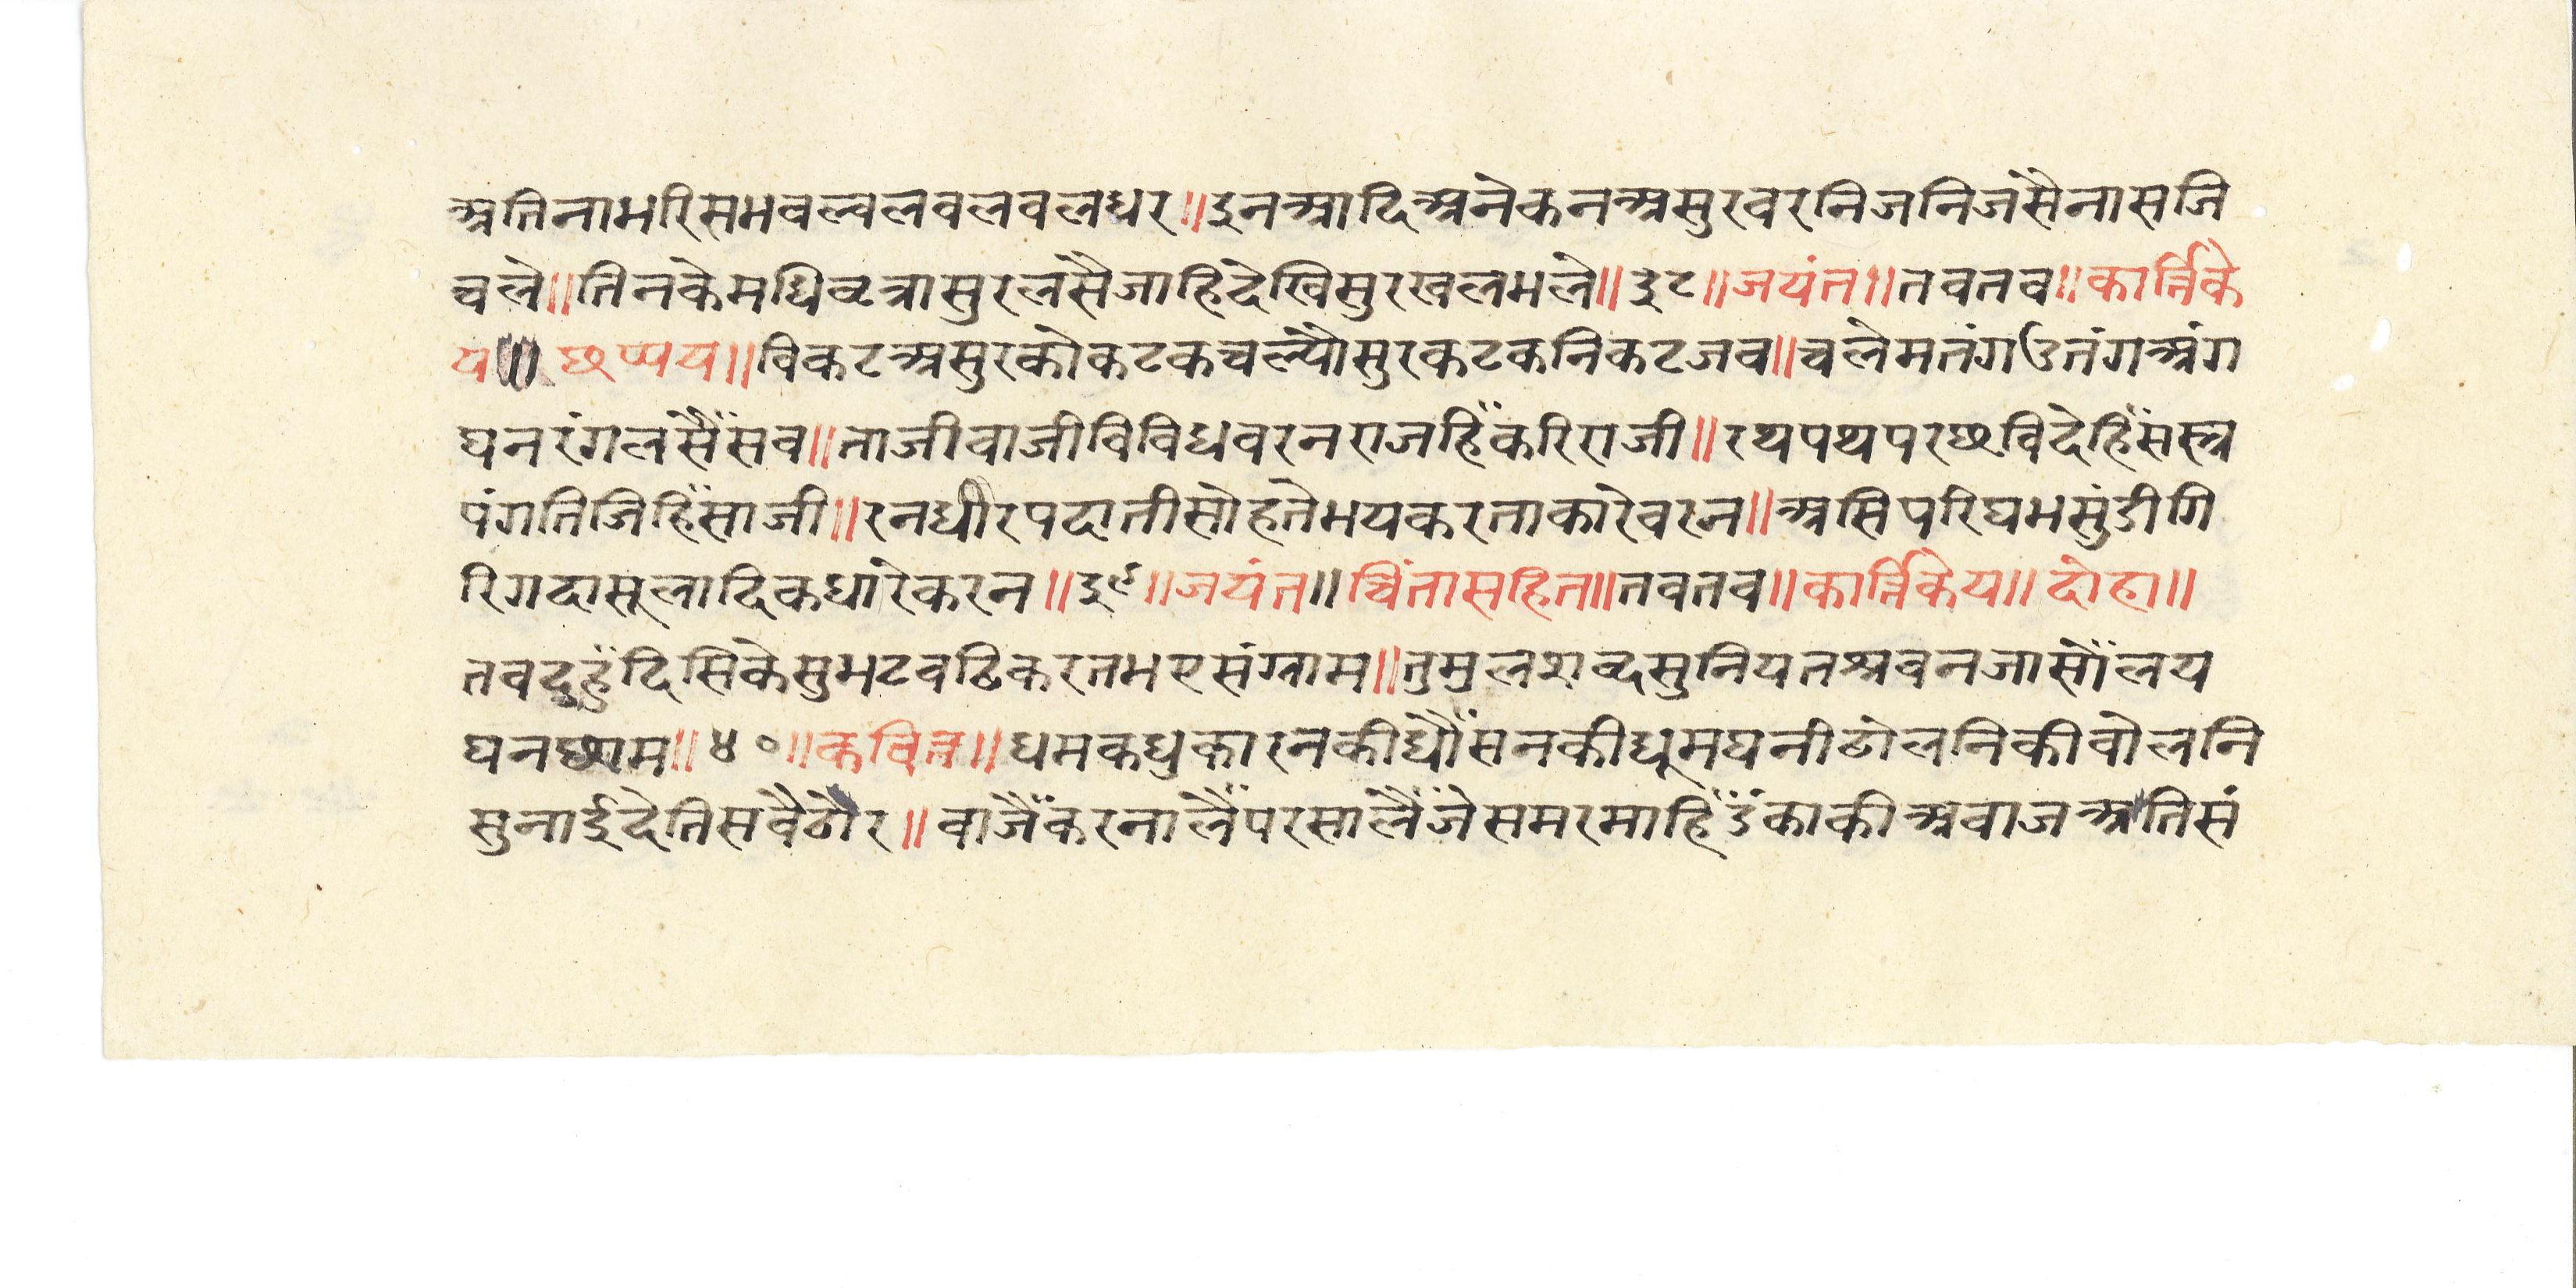 अतिनामरिसमवल्वलवलवलधर॥इनआदिअनेकनअसुरवरनिजनिजसैनासजि
चले॥तिनकेमधिवृत्रासुरलसैजाहिदेखिसुरखलभले॥३८॥जयंत॥तवतव॥कार्त्तिके
य॥छप्पय॥विकटअसुरकोकटकचल्यौसुरकटकनिकटजव॥चलेमतंगउतंगअंग
घनरंगलसैंसव॥ताजीवाजीविविधवरनराजहिंकरिराजी॥रथपथपरछविदेहिंसस्त्र
पंगतिजिहिंसाजी॥रनधीरपदातीसोहतेभयकरताकारेवरन॥असिपरिघभसुंडीगि
रिगदासूलादिकधारेकरन॥३९॥जयंत॥चिंतासहित॥तवतव॥कार्त्तिकेय॥दोहा॥
तवदुहुंदिसिकेसुभटवढिकरतभएसंग्राम॥तुमुलशव्दसुनियतश्रवनजासौंलय
घनछाम॥४०॥कवित्त॥धमकधुकारनकीधौंसनकीधूमघनीढोलनिकीवोलनि
सुनाईदेतिसवैठौर॥वाजैंकरनालैंपरसालैंजेसमरमाहिंडंकाकीअवाजअतिसं